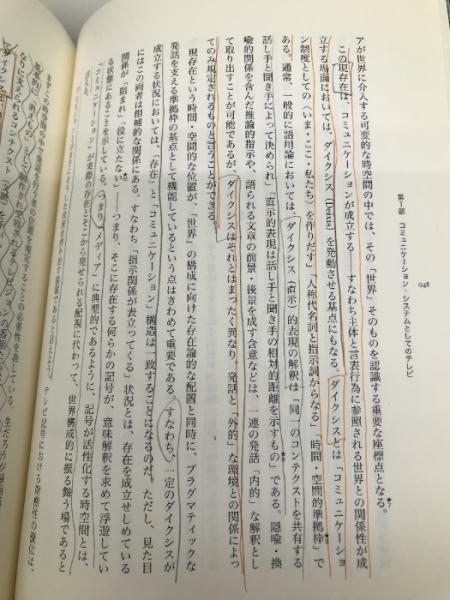 048
第Ⅰ部　コミュニケーション・システムとしてのテレビ
アが世界に介入する可変的な時空間の中では、その「世界」そのものを認識する重要な座標点となる。
この現存在は、コミュニケーションが成立する――すなわち主体と言表行為に参照される世界との関係性が成
立する場面においては、ダイクシス(Deixis)を発動させる基点にもなる。ダイクシスとは「コミュニケーショ
ン制度としての〈いま・ここ・私たち〉を作りだす」「人称代名詞と指示詞からなる」時間・空間的準拠枠」で
ある。通常、一般的に語用論においては、ダイクシス(直示)的表現の解釈は「同一のコンテクストを共有する
話し手と聞き手によって決められ」「直示的表現は話し手と聞き手の相対的距離を示すもの」である。隠喩・換
喩的関係を含んだ推論的指示や、語られる文章の前景・後景を成す含意などは、一連の発話「内的」な解釈とし
て取り出すことが可能であるが、ダイクシスはそれとはまったく異なり、発話と「外的」な環境との関係によっ
てのみ規定されるものと言うことができる。
現存在という時間・空間的な位置が、「世界」の構成に向けた存在論的な配置と同時に、プラグマティックな
発話を支える準拠枠の基点として機能しているという点はきわめて重要である。すなわち、一定のダイクシスが
成立する状況においては、「存在」と「コミュニケーション」構造は一致することになるのだ。ただし、見た目
にはこの両者は相補的な関係にある。すなわち「指示関係が表立ってくる」状況とは、存在を成立せしめている
関係が「阻まれ」「没に立たない」――つまり、そこに存在する何らかの記号が、意味解釈を求めて浮遊してい
る状態にあることを示している。つまり「メディア」に典型的であるように、記号が活性化する時空間とは、
「コミュニケーション」が実際の存在とそこから発せられる配視に代わって、世界構成的に振る舞う場であると